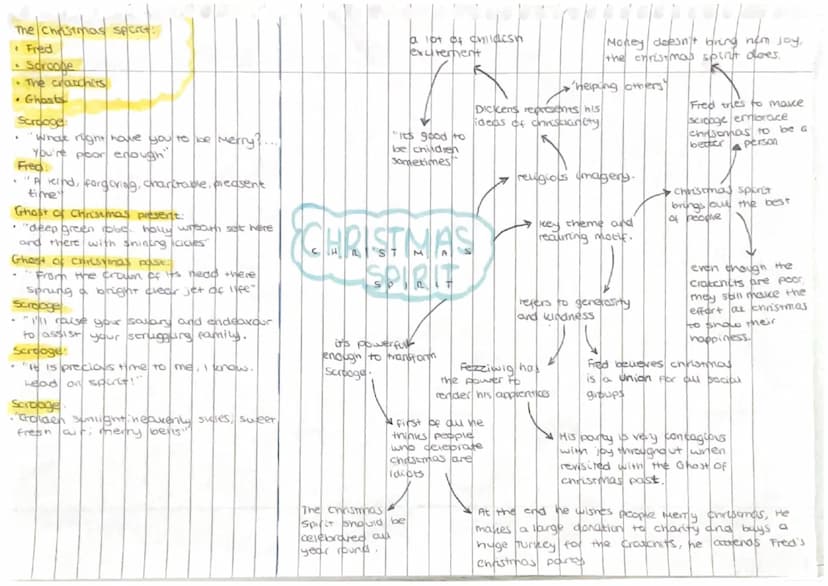 The Christmas Spirit:
• Fred
• Scrooge
• The Cratchits
• Ghosts
Scrooge:
• "What right have you to be merry?...
You're poor enough"
Fred:
• "A kind, forgiving, charitable, pleasent
time"
Ghost of Christmas present:
• "deep green robe. holly wreath set here
and there with shining icicles"
Ghost of Christmas past:
• "From the crown of its head there
sprung a bright clear jet of life"
Scrooge:
• "I'll raise your salary and endeavour
to assist your struggling family.
Scrooge:
• "It is precious time to me, I know.
Lead on spirit!"
Scrooge:
• "Golden sunlight; heavenly skies; sweet
fresh air; merry bells"
CHRISTMAS
CHRISTMAS
SPIRIT
SPIRIT
religious imagery.
Dickens represents his
ideas of christianity
"helping others"
a lot of childish
excitement
"it's good to
be children
sometimes"
key theme and
recurring motif.
christmas spirit
brings out the best
of people
Fred tries to make
scrooge embrace
christmas to be a
better person
Money doesn't bring him joy,
the christmas spirit does.
even though the
cratchits are poor
they still make the
effort at christmas
to show their
happiness.
refers to generosity
and kindness
Fezziwig has
the power to
render his apprentices
Fred believes christmas
is a union for all social
groups
His party is very contagious
with joy throughout when
revisited with the Ghost of
christmas past.
it's powerful
enough to transform
Scrooge.
First of all he
thinks people
who celebrate
christmas are
idiots
The Christmas
Spirit should be
celebrated all
year round.
At the end he wishes people Merry Christmas, He
makes a large donation to charity and buys a
huge Turkey for the Cratchits, he attends Fred's
christmas party